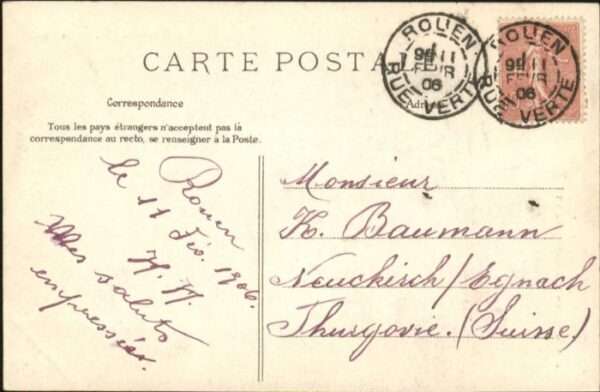 CARTE POSTA
Correspondance
Tous les pays étrangers n'acceptent pas la
correspondance au recto, se renseigner à la Poste.
ROUEN
11
FEVR
06
RUE VERTE
ROUEN
11
FEVR
06
RUE VERTE
Adr
Rouen
le 11 Fév. 1906.
H. H.
Mes saluts
empressés.
Monsieur
H. Baumann
Neuckirch/Egnach
Thurgovie. (Suisse)